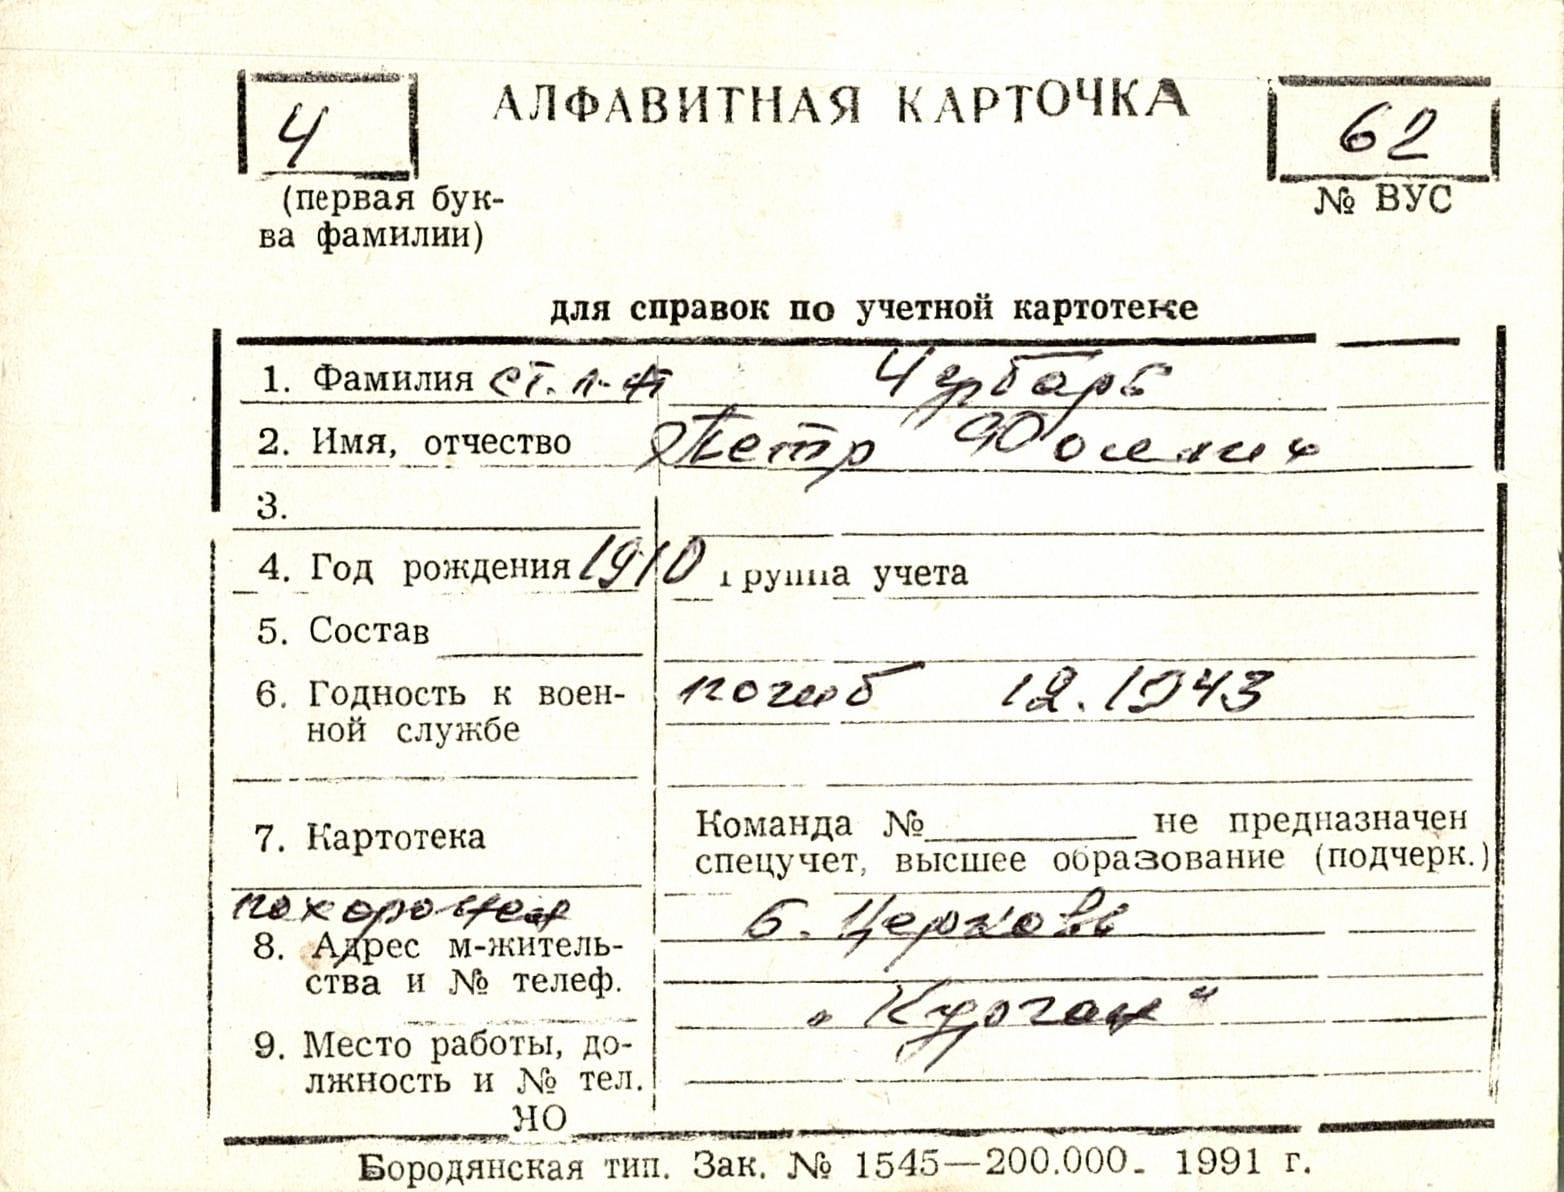 Ч
АЛФАВИТНАЯ КАРТОЧКА
62
(первая бук-
ва фамилии)
№ ВУС
для справок по учетной картотеке
1. Фамилия ст. л-т Чубарь
2. Имя, отчество Петр
3.
4. Год рождения 1910 Группа учета
5. Состав
6. Годность к воен- погиб 12.1943
ной службе
7. Картотека
Команда № не предназначен
спецучет, высшее образование (подчерк.)
похоронен Б. Церковь
8. Адрес м-житель-
ства и № телеф.
„Курган“
9. Место работы, до-
лжность и № тел.
НО
Бородянская тип. Зак. № 1545—200.000. 1991 г.